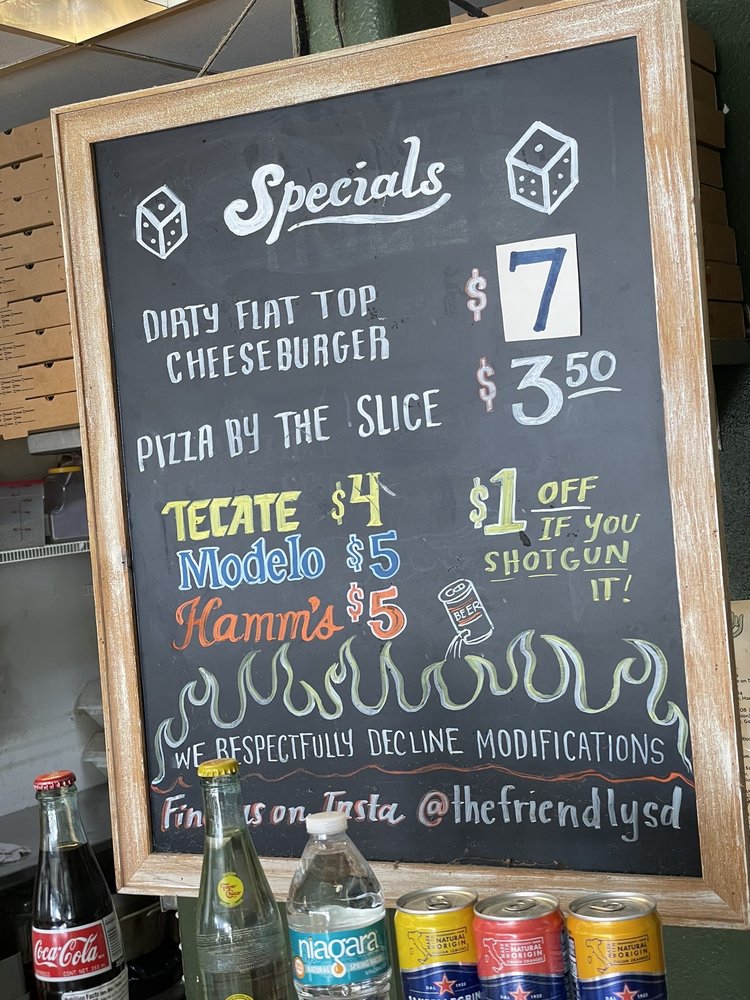 Specials
DIRTY FLAT TOP
CHEESEBURGER
$7
PIZZA BY THE SLICE
$3.50
TECATE $4
Modelo $5
Hamm's $5
$1 OFF
IF YOU
SHOTGUN
IT!
BEER
WE RESPECTFULLY DECLINE MODIFICATIONS
Find us on Insta @thefriendlysd
Coca-Cola
Topo Chico
niagara
NATURAL SPRING WATER
NATURAL
ORIGIN
NATURAL
ORIGIN
NATURAL
ORIGIN